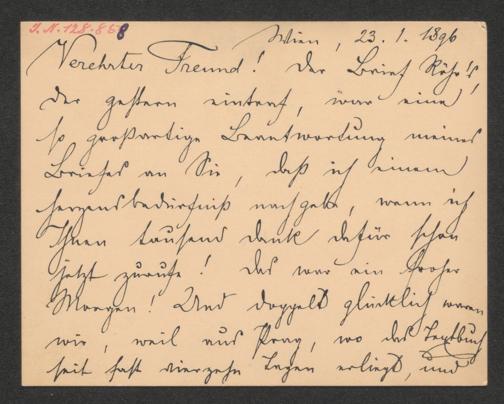 J.N. 128.868
Wien, 23. 1. 1896
Verehrter Freund! Der Brief Röhr's,
der gestern eintraf, war eine
so großartige Beantwortung meines
Briefes an Sie, daß ich einem
Herzensbedürfniß nachgebe, wenn ich
Ihnen tausend Dank dafür schon
jetzt zurufe! Das war ein froher
Morgen! Und doppelt glücklich waren
wir, weil aus Prag, wo das Textbuch
seit fast vierzehn Tagen erliegt, und